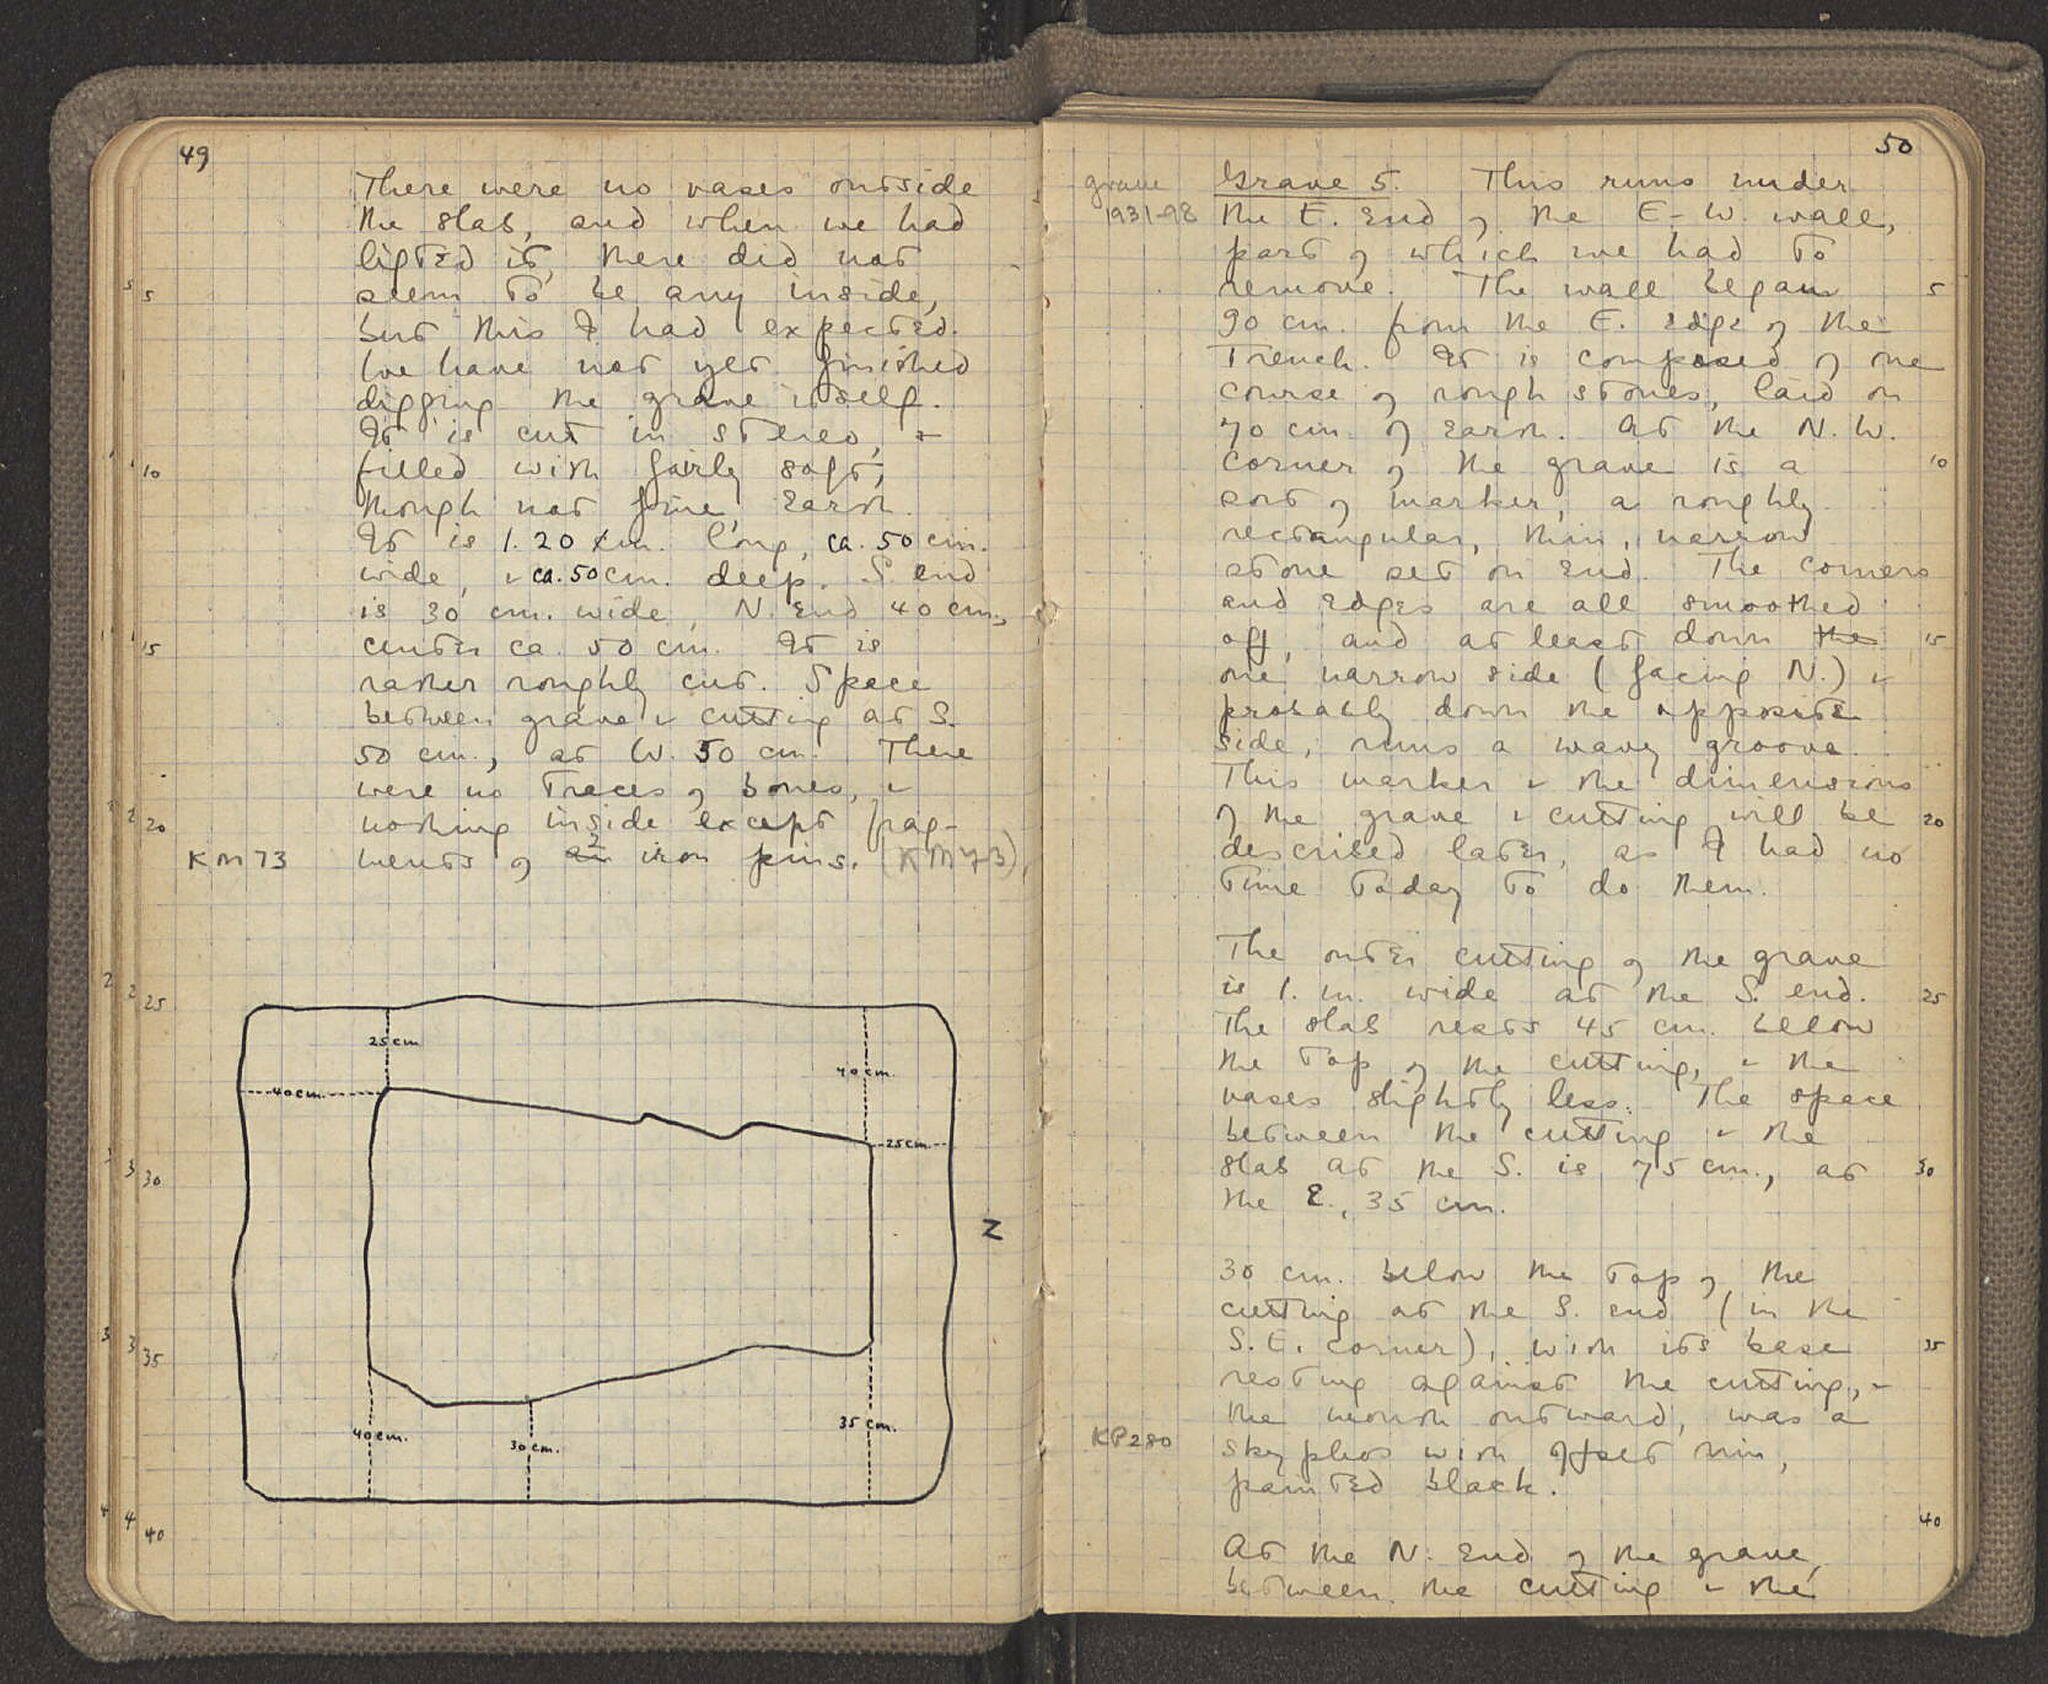 49
There were no vases outside
the slab, and when we had
lifted it, there did not
seem to be any inside,
5
but this I had expected.
We have not yet finished
digging the grave itself.
It is cut in stereo, &
filled with fairly soft,
10
though not fine, earth.
It is 1.20 m. long, ca. 50 cm.
wide, & ca. 50 cm. deep. S. end
is 30 cm. wide, N. end 40 cm.,
center ca. 50 cm. It is
15
rather roughly cut. Space
between grave & cutting at S.
50 cm., at W. 50 cm. There
were no traces of bones, &
nothing inside except frag-
20
KM73 ments of an 2 iron pins. (KM73)
25
25 cm
40 cm.
40 cm.
25 cm.
30
N
35
40 cm.
30 cm.
35 cm.
40
50
grave
1931-98
Grave 5. This runs under
the E. end of the E-W. wall,
part of which we had to
remove. The wall began
5
90 cm. from the E. edge of the
trench. It is composed of one
course of rough stones, laid on
70 cm. of earth. At the N.W.
corner of the grave is a
10
sort of marker, a roughly
rectangular, thin, narrow
stone set on end. The corners
and edges are all smoothed
off, and at least down the
15
one narrow side (facing N.) &
probably down the opposite
side, runs a wavy groove.
This marker & the dimensions
of the grave & cutting will be
20
described later, as I had no
time today to do them.
The outer cutting of the grave
is 1. m. wide at the S. end.
25
The slab rests 45 cm. below
the top of the cutting, & the
vases slightly less. The space
between the cutting & the
slab at the S. is 75 cm., at
30
the E., 35 cm.
30 cm. below the top of the
cutting at the S. end (in the
S.E. corner), with its base
35
resting against the cutting, &
the mouth outward, was a
KP280 skyphos with offset rim,
painted black.
40
At the N. end of the grave,
between the cutting & the